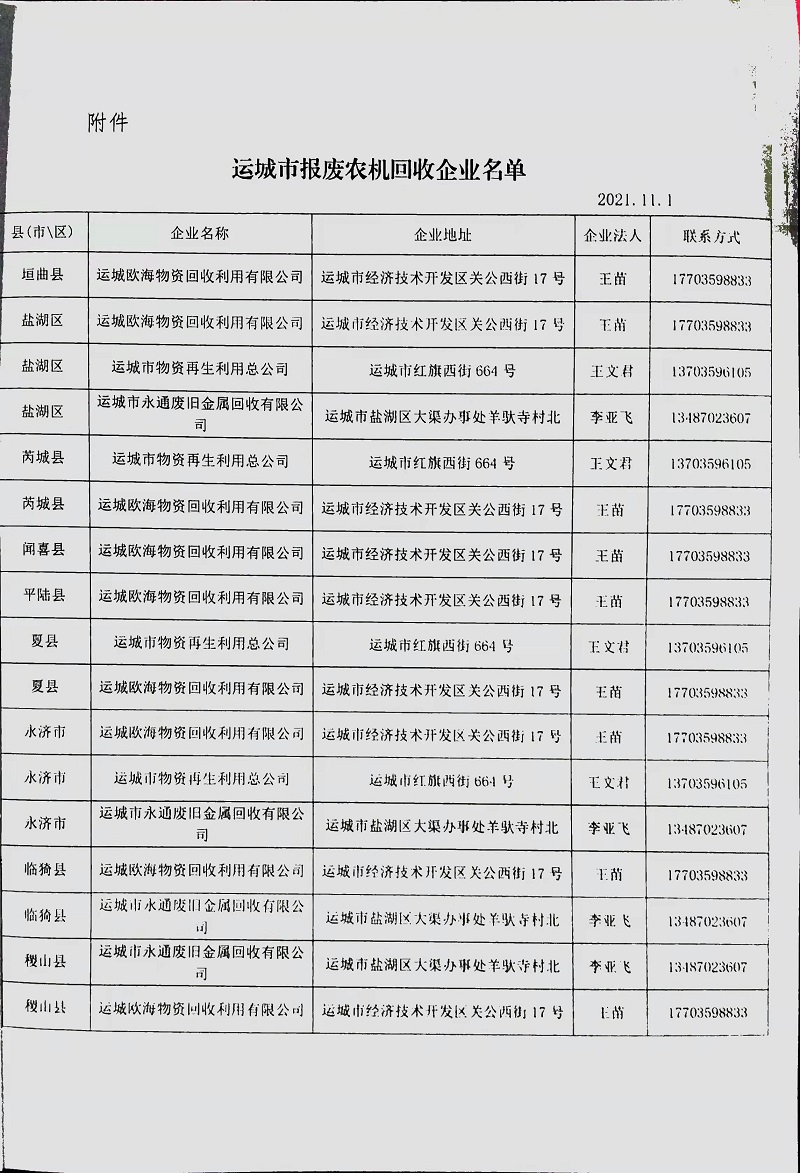 附件
运城市报废农机回收企业名单
2021.11.1
县(市\区) 企业名称 企业地址 企业法人 联系方式
垣曲县 运城欧海物资回收利用有限公司 运城市经济技术开发区关公西街 17 号 王苗 17703598833
盐湖区 运城欧海物资回收利用有限公司 运城市经济技术开发区关公西街 17 号 王苗 17703598833
盐湖区 运城市物资再生利用总公司 运城市红旗西街 664 号 王文君 13703596105
盐湖区 运城市永通废旧金属回收有限公
司 运城市盐湖区大渠办事处羊驮寺村北 李亚飞 13487023607
芮城县 运城市物资再生利用总公司 运城市红旗西街 664 号 王文君 13703596105
芮城县 运城欧海物资回收利用有限公司 运城市经济技术开发区关公西街 17 号 王苗 17703598833
闻喜县 运城欧海物资回收利用有限公司 运城市经济技术开发区关公西街 17 号 王苗 17703598833
平陆县 运城欧海物资回收利用有限公司 运城市经济技术开发区关公西街 17 号 王苗 17703598833
夏县 运城市物资再生利用总公司 运城市红旗西街 664 号 王文君 13703596105
夏县 运城欧海物资回收利用有限公司 运城市经济技术开发区关公西街 17 号 王苗 17703598833
永济市 运城欧海物资回收利用有限公司 运城市经济技术开发区关公西街 17 号 王苗 17703598833
永济市 运城市物资再生利用总公司 运城市红旗西街 664 号 王文君 13703596105
永济市 运城市永通废旧金属回收有限公
司 运城市盐湖区大渠办事处羊驮寺村北 李亚飞 13487023607
临猗县 运城欧海物资回收利用有限公司 运城市经济技术开发区关公西街 17 号 王苗 17703598833
临猗县 运城市永通废旧金属回收有限公
司 运城市盐湖区大渠办事处羊驮寺村北 李亚飞 13487023607
稷山县 运城市永通废旧金属回收有限公
司 运城市盐湖区大渠办事处羊驮寺村北 李亚飞 13487023607
稷山县 运城欧海物资回收利用有限公司 运城市经济技术开发区关公西街 17 号 王苗 17703598833